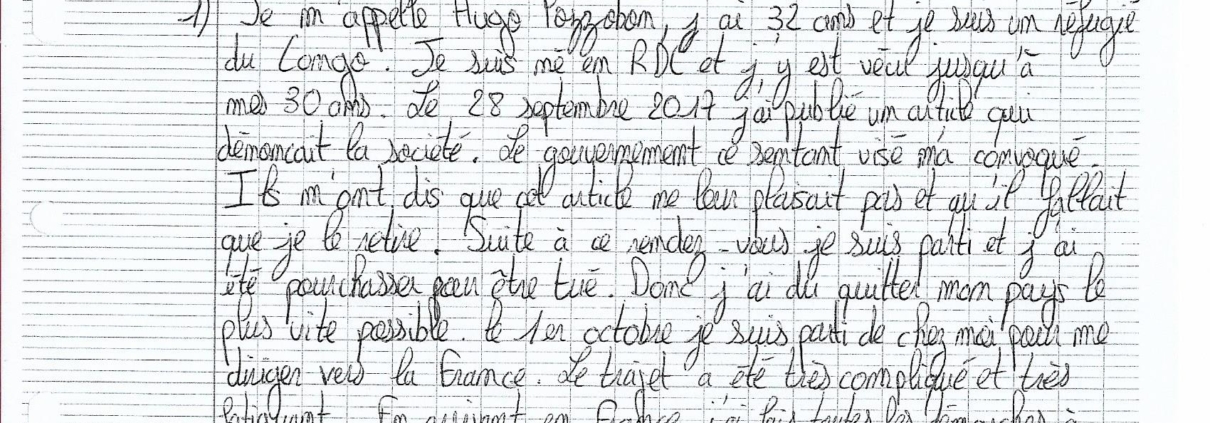 1) Je m'appelle Hugo Pozzobon, j'ai 32 ans et je suis un réfugié
du Congo. Je suis né en RDC et j'y est vécu jusqu'à
mes 30 ans. Le 28 septembre 2017 j'ai publié un article qui
dénoncait la société. Le gouvernement ce sentant visé m'a convoqué.
Ils m'ont dis que cet article ne leur plaisait pas et qu'il fallait
que je le retire. Suite à ce rendez-vous je suis parti et j'ai
été pourchasser pour être tué. Donc j'ai du quitter mon pays le
plus vite possible. Le 1er octobre je suis parti de chez moi pour me
diriger vers la France. Le trajet a été très compliqué et très
fatiguant. En arrivant en France j'ai fais toutes les démarches à